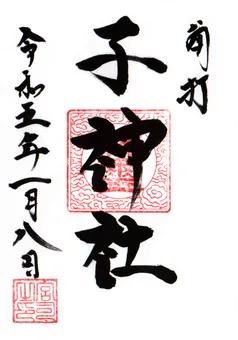 子神社
令和五年一月八日